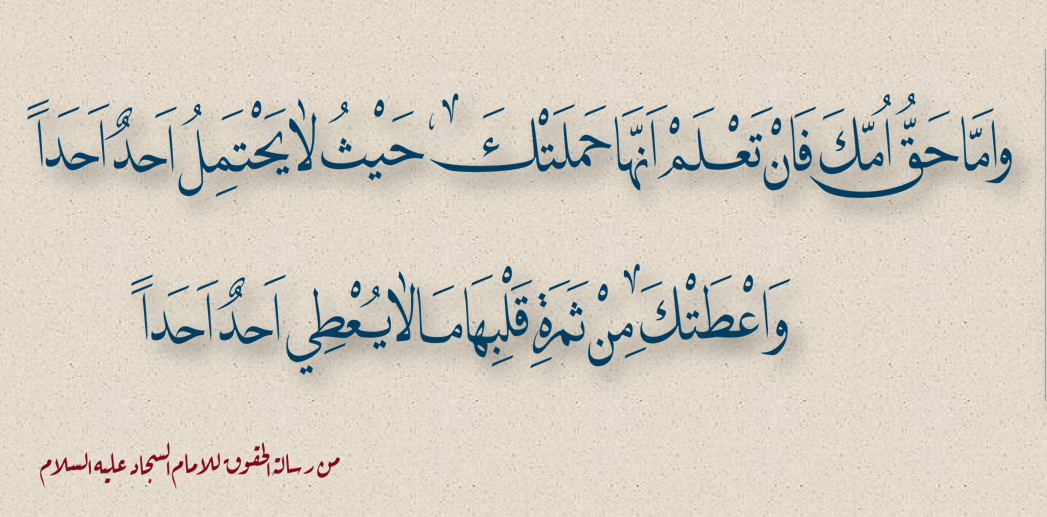 وَاَمَّا حَقُّ اُمِّكَ فَاَنْ تَعْلَمَ اَنَّهَا حَمَلَتْكَ حَيْثُ لَا يَحْتَمِلُ اَحَدٌ اَحَدَاً
وَاَعْطَتْكَ مِنْ ثَمَرَةِ قَلْبِهَا مَا لَا يُعْطِي اَحَدٌ اَحَدَاً
من رسالة الحقوق للامام السجاد عليه السلام